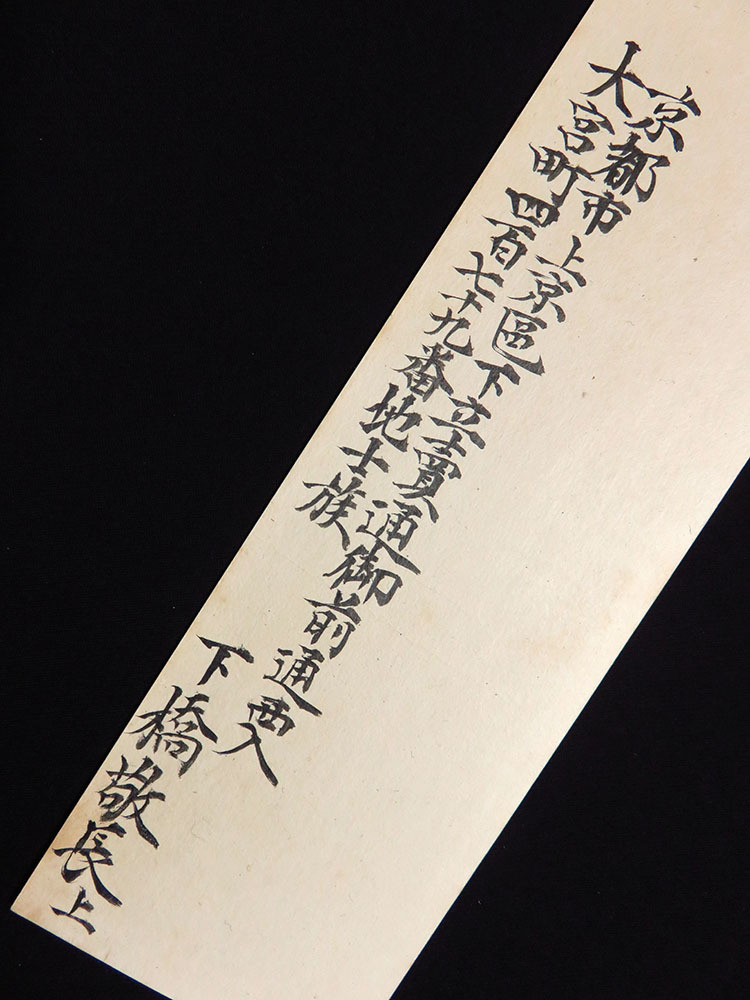 京都市上京區下立賣通御前通西入
大宮町四百七十九番地士族
下橋敬長上